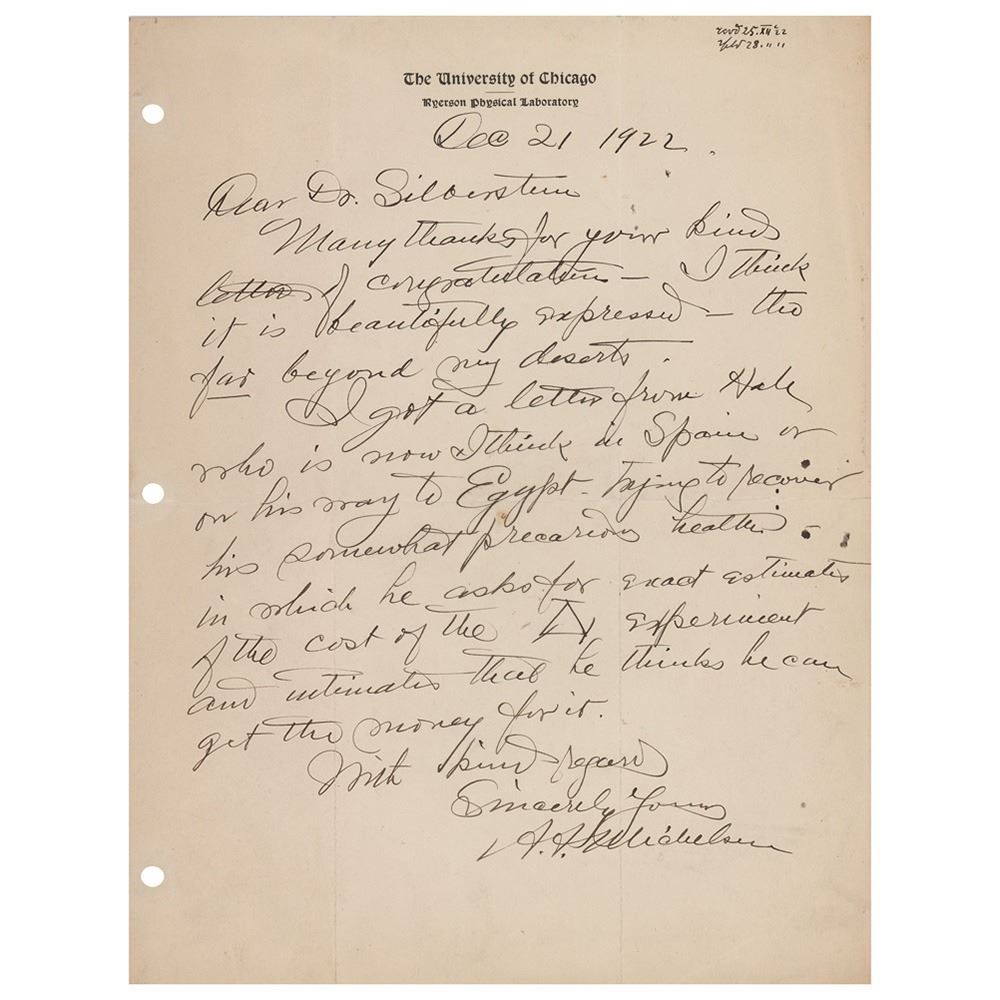 recvd 25.XII 22
repld 28. " "
The University of Chicago
Ryerson Physical Laboratory
Dec 21 1922.
Dear Dr. Silberstein
Many thanks for your kind
letter of congratulation — I think
it is beautifully expressed — tho
far beyond my deserts.
I got a letter from Hale
who is now I think in Spain or
on his way to Egypt - trying to recover
his somewhat precarious health -
in which he asks for exact estimates
of the cost of the experiment
and intimates that he thinks he can
get the money for it.
With kind regard
Sincerely Yours
A. A. Michelson